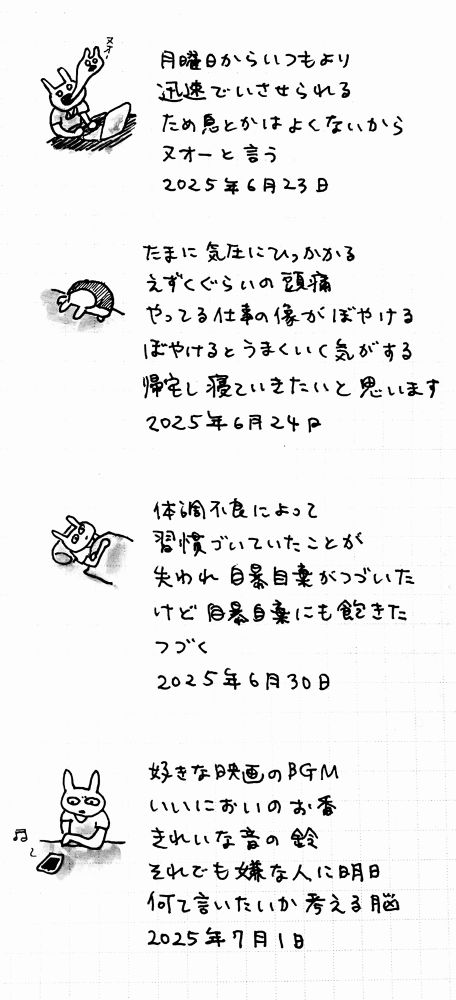 ヌオー
月曜日からいつもより
迅速でいさせられる
ため息とかはよくないから
ヌオーと言う
2025年6月23日
たまに気圧にひっかかる
えずくぐらいの頭痛
やってる仕事の像がぼやける
ぼやけるとうまくいく気がする
帰宅し寝ていきたいと思います
2025年6月24日
体調不良によって
習慣づいていたことが
失われ自暴自棄がつづいた
けど自暴自棄にも飽きた
つづく
2025年6月30日
好きな映画のBGM
いいにおいのお香
きれいな音の鈴
それでも嫌な人に明日
何て言いたいか考える脳
2025年7月1日